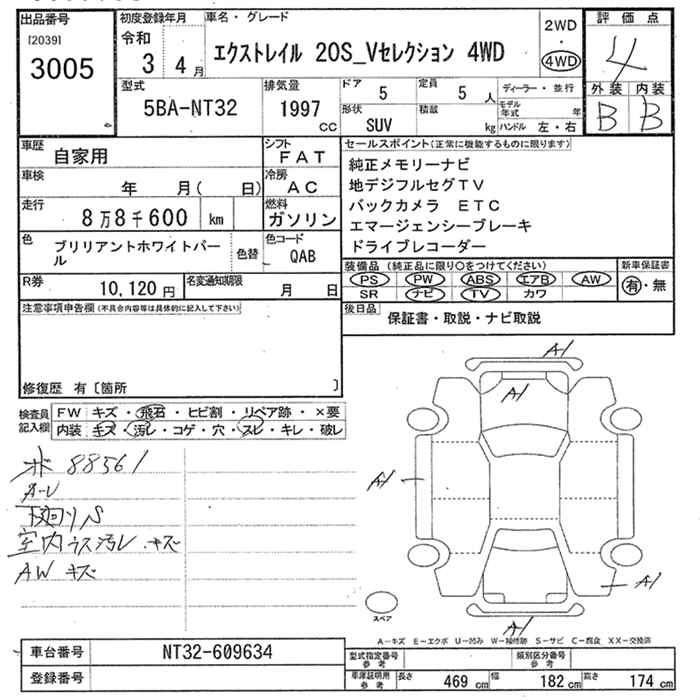 出品番号
[2039]
3005
初度登録年月
令和
3 4 月
車名・グレード
エクストレイル 20S_Vセレクション 4WD
2WD
・
4WD
評価点
4
外装 内装
B B
型式
5BA-NT32
排気量
1997
CC
ドア
5
定員
5 人
形状
SUV
積載
kg
ディーラー・並行
モデル年式 年
ハンドル 左・右
車歴
自家用
シフト
FAT
車検
年 月( 日)
冷房
AC
走行
8万8千600 km
燃料
ガソリン
色
ブリリアントホワイトパール
色替
色コード
QAB
R券
10,120 円
名変通知期限
月 日
セールスポイント(正常に機能するものに限ります)
純正メモリーナビ
地デジフルセグTV
バックカメラ ETC
エマージェンシーブレーキ
ドライブレコーダー
装備品 (純正品に限り○をつけてください)
PS PW ABS エアB AW
SR ナビ TV カワ
新車保証書
有・無
後日品
保証書・取説・ナビ取説
注意事項申告欄(不具合内容等は具体的に記入して下さい)
修復歴 有〔箇所 〕
検査員記入欄
FW キズ・飛石・ヒビ割・リペア跡・×要
内装 キズ・汚レ・コゲ・穴・スレ・キレ・破レ
88561
A-U
下廻りS
室内ウス汚レ・キズ
AW キズ
A1
A1
A1
A1
A1
スペア
A-キズ E-エクボ U-凹み W-補修跡 S-サビ C-腐食 XX-交換済
車台番号
NT32-609634
登録番号
型式指定番号
参考
類別区分番号
参考
車庫証明用
参考
長さ 469 cm
幅 182 cm
高さ 174 cm